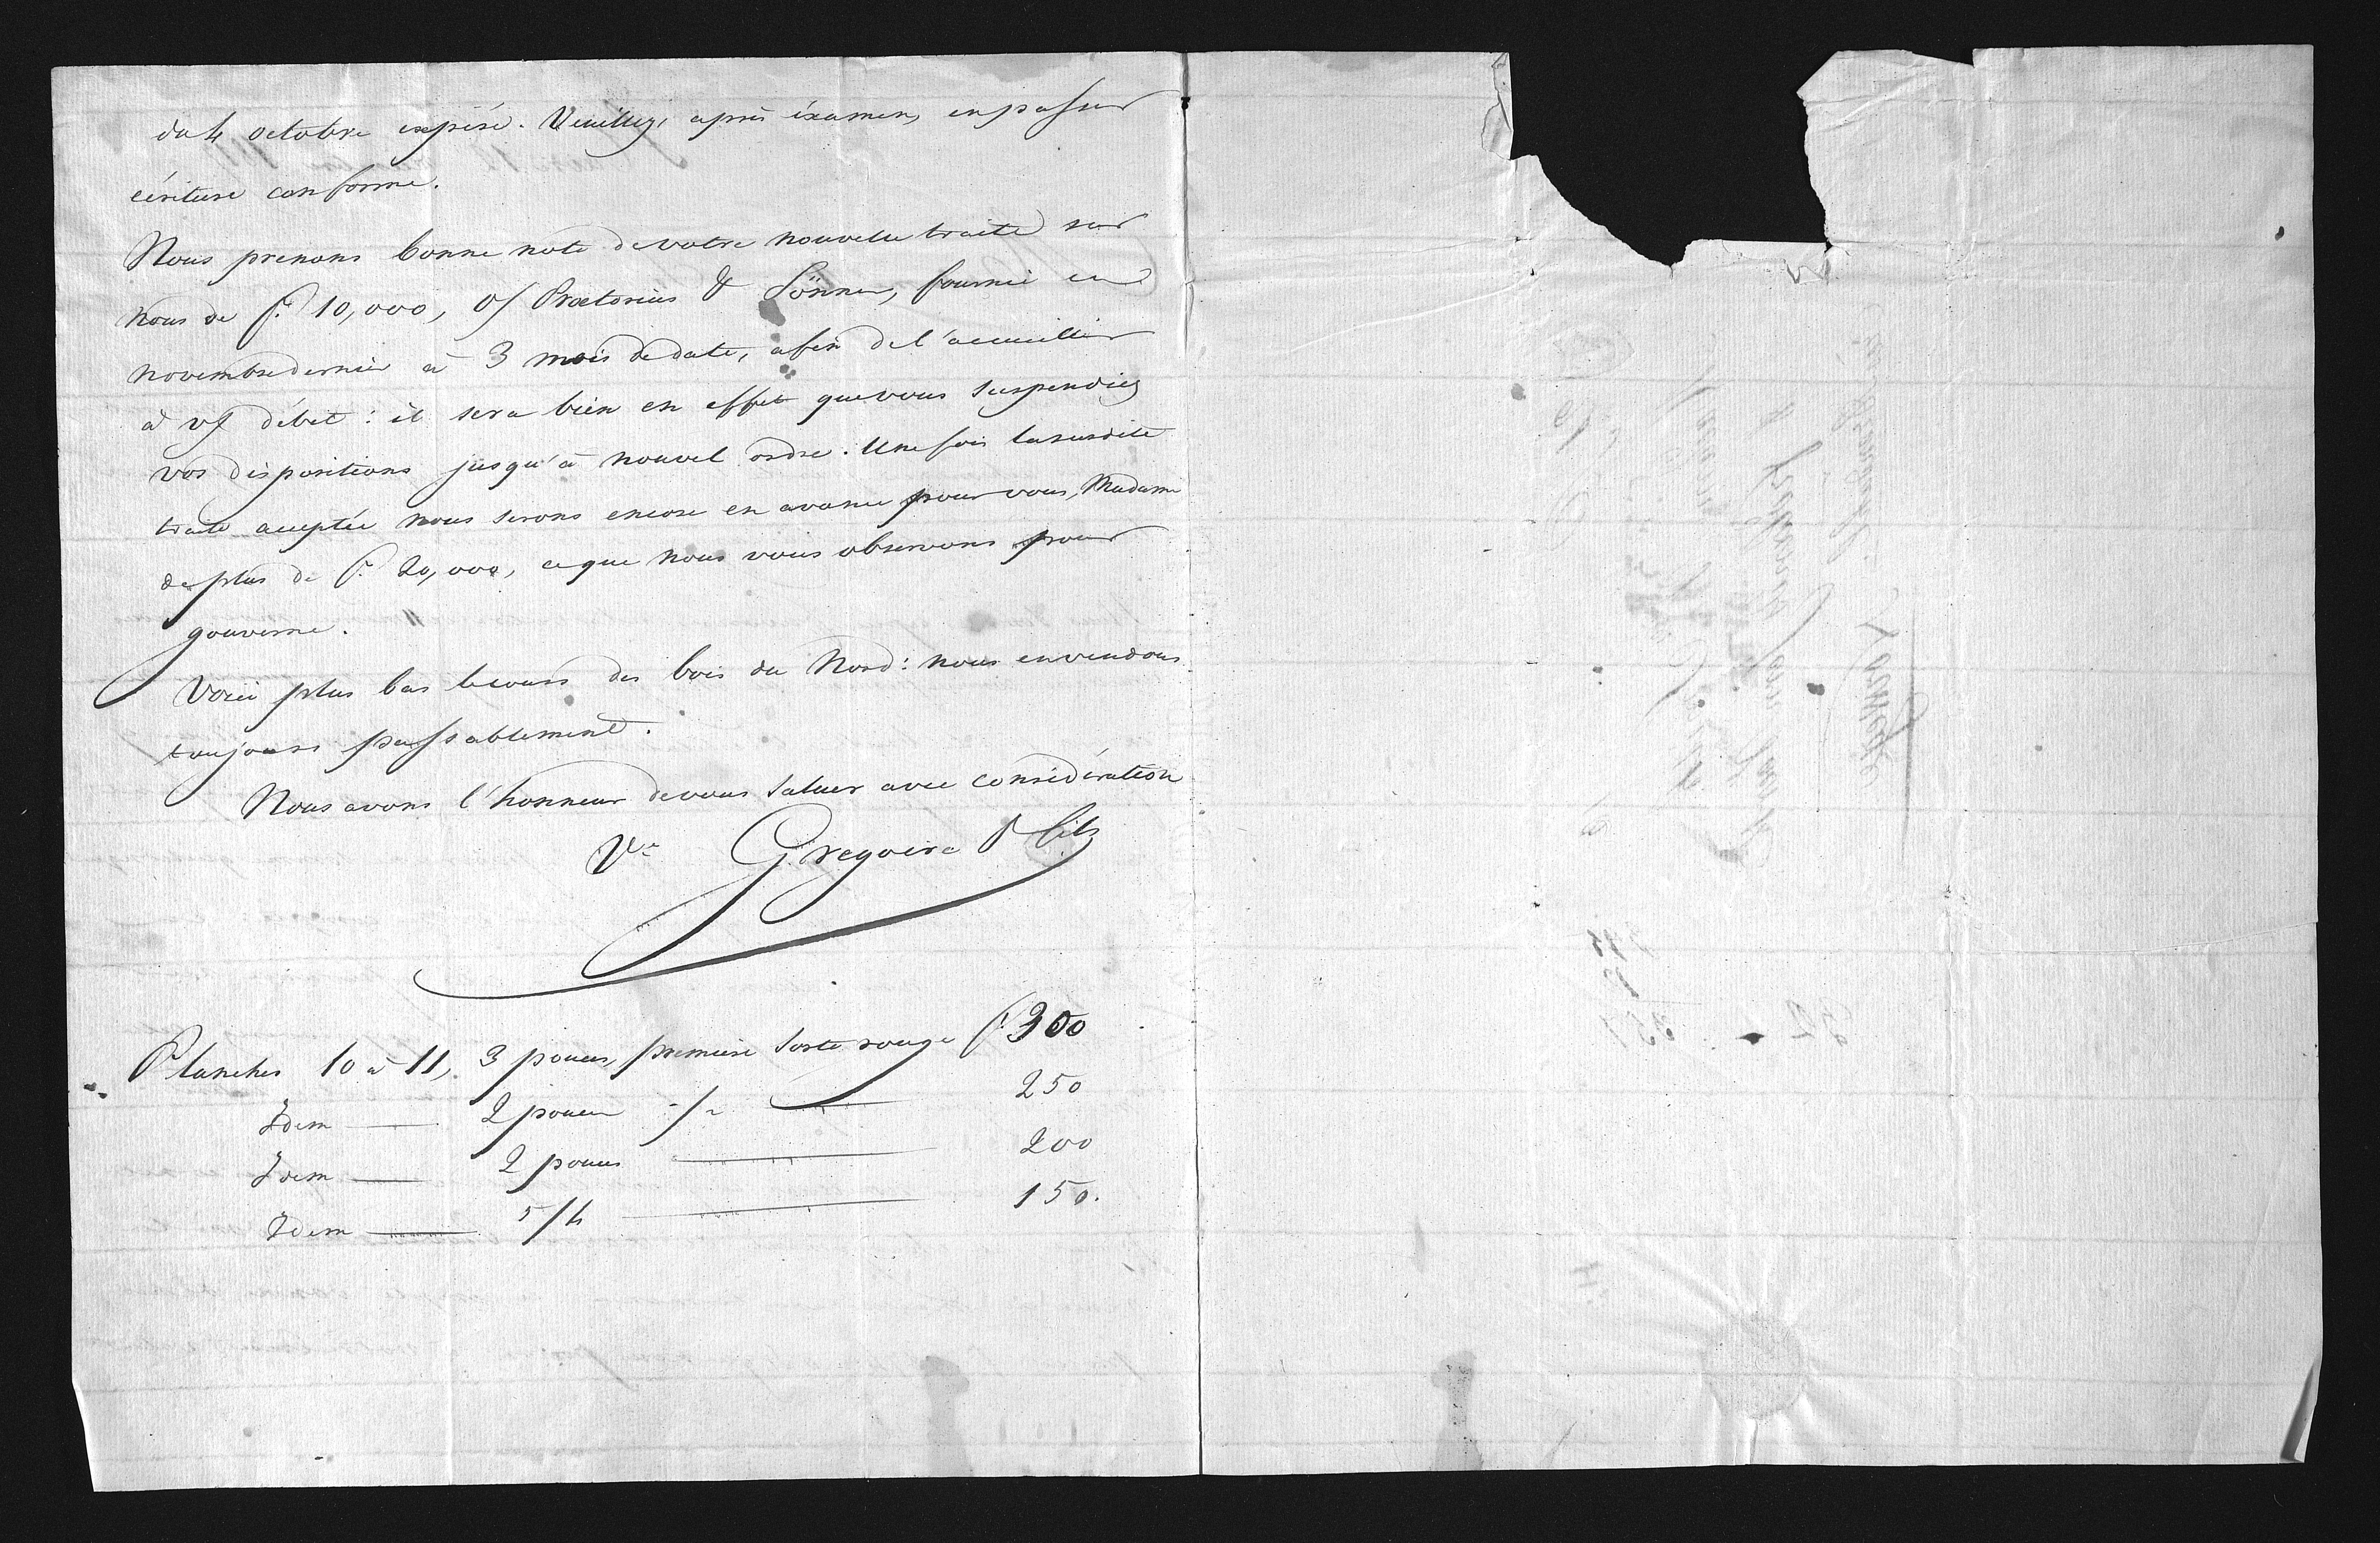 du 4 octobre expiré. Veuillez, après éxamen, en passer
écriture conforme.
Nous prenons bonne note de votre nouvelle traite sur
nous de f. 10,000, o/ Prætorius & Sönner, fournie en
novembre dernier à 3 mois de date, afin de l'accueillir
à v/ débit: il sera bien en effet que vous suspendiez
vos dispositions jusqu'à nouvel ordre. Une fois la susdite
traite acceptée nous serons encore en avance pour vous, Madame
de plus de f. 20,000, ce que nous vous observons pour
gouverne.
Voici plus bas le cours des bois du Nord: nous en vendons
toujours passablement.
Nous avons l'honneur de vous saluer avec considération
Ve Gregoire & fils
Planches 10 à 11, 3 pouces, première sorte rouge f. 300
Idem 2 pouces 250
Idem 2 pouces 200
Idem 5/4 150.